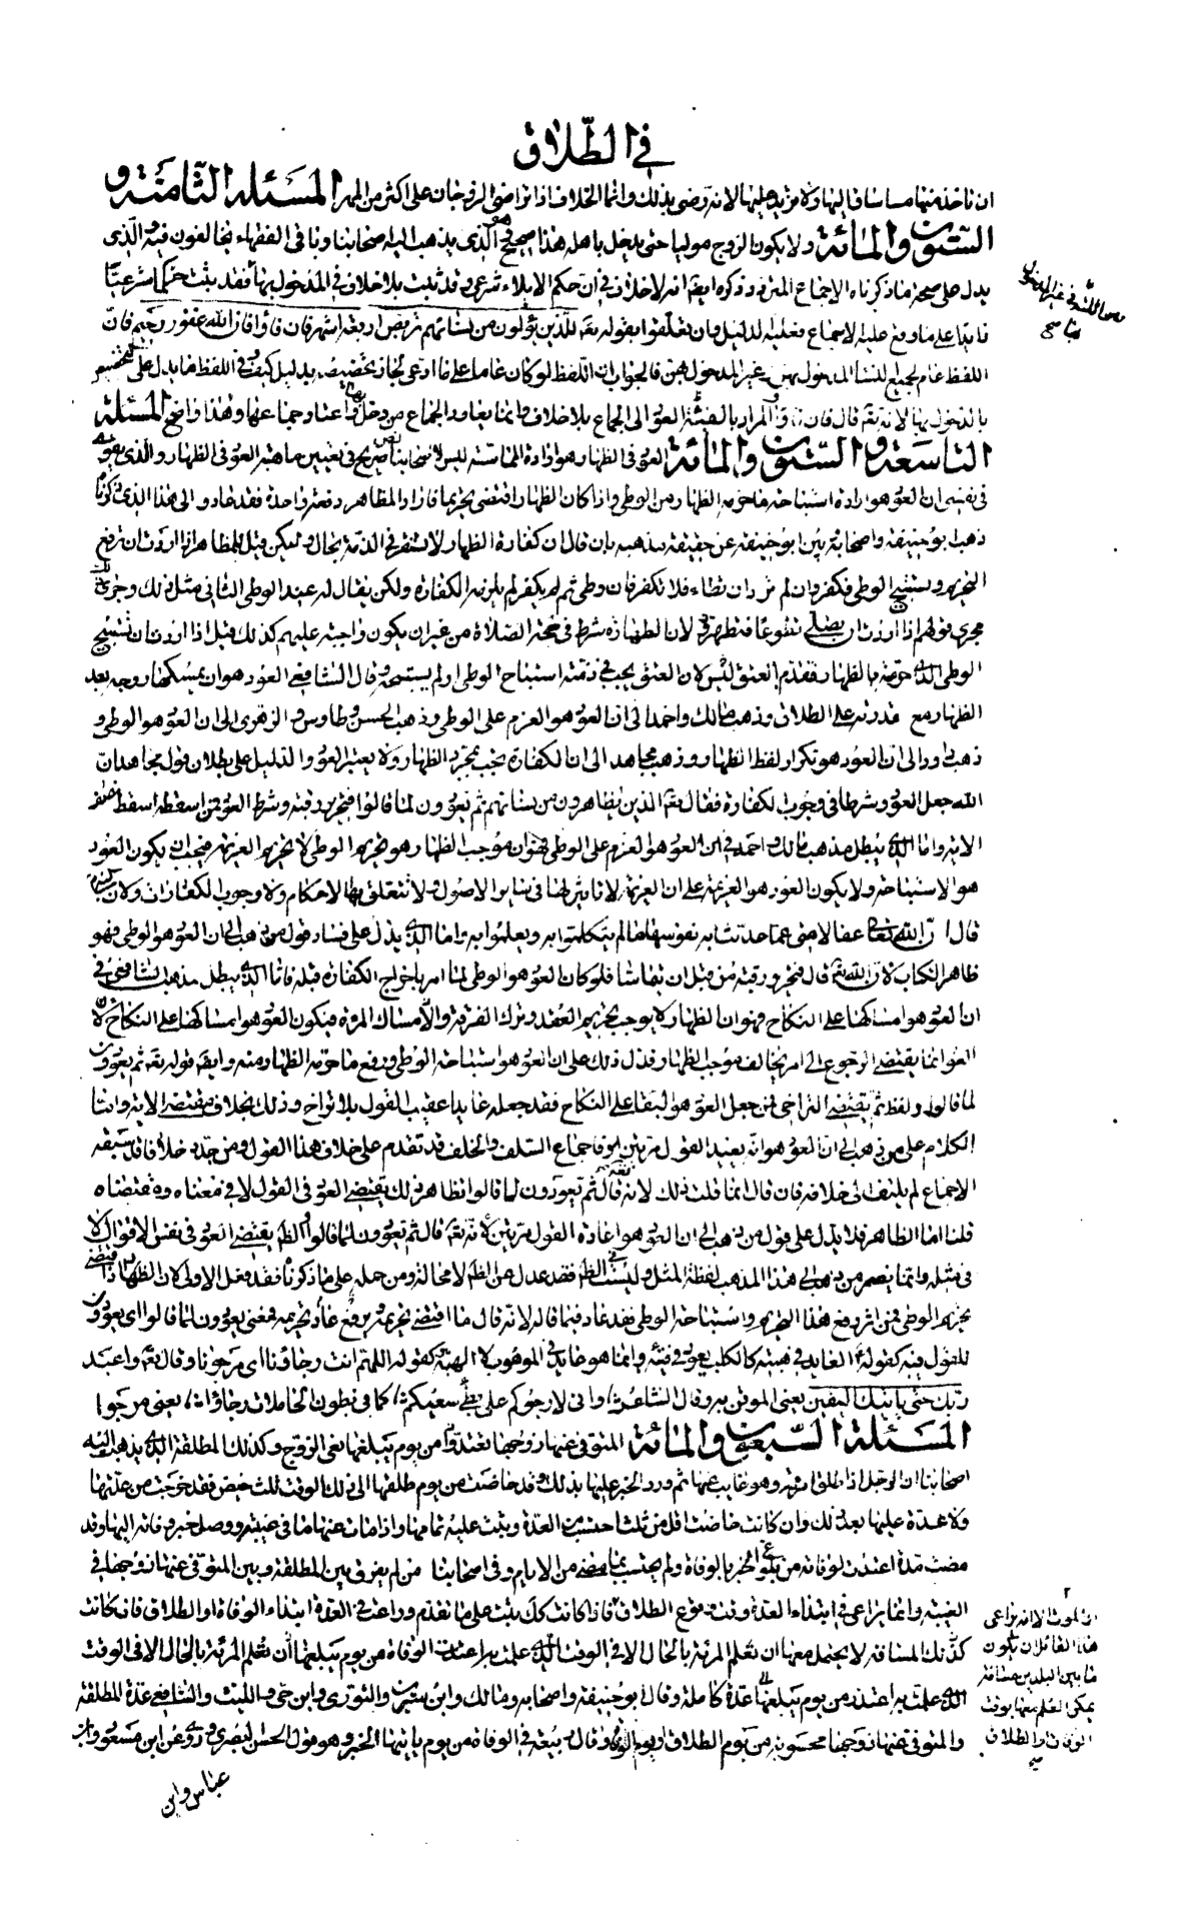 في الطلاق
ان تاخذ منها ما ساق اليها ولا مزيد عليها لانه رضى بذلك وانما الخلاف اذا تراضى الزوجان على اكثر من المهر المسئلة الثامنة و
الستون والمائة ولا يكون الزوج موليا حتى يدخل باهله هذا صحيح وهو الذي يذهب اليه اصحابنا وباقي الفقهاء يخالفون فيه والذي
يدل على صحة ما ذكرناه الاجماع المتردد ذكره ايضا انه لا خلاف في ان حكم الايلاء شرعى وقد ثبت بلا خلاف في المدخول بها فقد يثبت حكما شرعيا
زايدا على ما وقع عليه الاجماع فعليه الدليل فان تعلقوا بقوله تعالى للذين يؤلون من نسائهم تربص اربعة اشهر فان فاؤا فان الله غفور رحيم فان
اللفظ عام لجميع النساء المدخول بهن وغير المدخول بهن فالجواب ان اللفظ لو كان عاما على ما ادعى لجاز تخصيصه بدليل كيف وفي اللفظ ما يدل على التخصيص
بالدخول بها لانه تعالى قال فان فاؤا والمراد بالفيئة العود الى الجماع بلا خلاف وانما يعاود الجماع من دخل بها واعتاد جماعها وهذا واضح المسئلة
التاسعة و الستون والمائة العود في الظهار هو ارادة المماسة ليس لاصحابنا نص صريح في تعيين ما هية العود في الظهار والذي يقوى
في نفسى ان العود هو ارادة استباحة ما حرمه الظهار من الوطى واذا كان الظهار اقتضى تحريما فاراد المظاهر دفعه واحدة فقد عاد والى هذا الذي ذكرناه
ذهب ابو حنيفة واصحابه بين ابو حنيفة عن حقيقة مذهبه بان قال ان كفارة الظهار لا تستقر في الذمة بحال وليكن قيل للمظاهر اذا اردت ان ترفع
التحريم وتستبيح الوطى فكفر وان لم ترد ان تطاء فلا تكفر فان وطى ثم لم يكفر لم يلزمه الكفارة ولكن يقال له عند الوطى الثاني مثل ذلك وجرى ذلك
مجرى قولهم اذا اردت ان تصلى تطوعا فتطهر لان الطهارة شرط في صحة الصلاة من غير ان يكون واجبة عليهم كذلك قيل اذا اردت ان تستبيح
الوطى الذي حرمته بالظهار فقدم العتق ليس لان العتق يجب في ذمته استباح الوطى او لم يستبحه وقال الشافعي العود هو ان يمسكها زوجة بعد
الظهار مع قدرته على الطلاق وذهب مالك واحمد الى ان العود هو العزم على الوطى وذهب الحسن وطاوس والزهرى الى ان العود هو الوطى و
ذهب داود الى ان العود هو تكرار لفظ الظهار وذهب مجاهد الى ان الكفارة تجب بمجرد الظهار ولا يعتبر العود والدليل على بطلان قول مجاهد ان
الله جعل العود شرطا في وجوب الكفارة فقال تعالى الذين يظاهرون من نسائهم ثم يعودون لما قالوا فتحرير رقبة وشرط العود فمن اسقطه اسقط نصف
الاية واما الذي يبطل مذهب مالك واحمد في ان العود هو العزم على الوطى فهو ان موجب الظهار هو تحريم الوطى لا تحريم العزيمة فيجب ان يكون العود
هو الاستباحة ولا يكون العود هو العزيمة على ان العزيمة لا تاثير لها في ساير الاصول ولا تتعلق بها الاحكام ولا وجوب الكفارات ولان النبي
قال ان الله تعالى عفا لامتى عما حدثت به نفوسها ما لم يتكلموا به ويعلموا به واما الذي يدل على فساد قول من ذهب الى ان العود هو الوطى فهو
ظاهر الكتاب لان الله تعالى قال فتحرير رقبة من قبل ان يتماسا فلو كان العود هو الوطى لما امر باخراج الكفارة قبله فاما الذي يبطل مذهب الشافعى في
ان العود هو امساكها على النكاح فهو ان الظهار لا يوجب تحريم العقد وترك الفرقة والامساك المرءة فيكون العود هو امساكها على النكاح لان
العود انما يقتضى الرجوع الى امر يخالف موجب الظهار فدل ذلك على ان العود هو استباحة الوطى ورفع ما حرمه الظهار منه وايضا قوله تعالى ثم يعودون
لما قالوا ولفظ ثم يقتضى التراخى فمن جعل العود هو البقاء على النكاح فقد جعله عايدا عقيب القول بلا تراخ وذلك بخلاف مقتضى الاية واما
الكلام على من ذهب الى ان العود هو انه يعيد القول مرتين فهو اجماع السلف والخلف قد تقدم على خلاف هذا القول ومن جدد خلافا قد سبقه
الاجماع لم يلتفت الى خلافه فان قال انما قلت ذلك لانه تعالى قال ثم يعودون لما قالوا فظاهر ذلك يقتضى العود في القول لا في معناه ومقتضاه
قلنا اما الظاهر فلا يدل على قول من ذهب الى ان العود هو اعادة القول مرتين لانه تعالى قال ثم يعودون لما قالوا والظاهر يقتضى العود في نفس الاقوال لا
في مثله وانما يضمر من ذهب الى هذا المذهب لفظة المثل وليست في الظاهر فقد عدل عن الظاهر لا محالة ومن حمله على ما ذكرناه فقد فعل الاولى لان الظهار اذا اقتضى
تحريم الوطى فمن اثر رفع هذا التحريم واستباحة الوطى فقد عاد فيما قاله لانه قال ما اقتضى تحريمه ثم رفع عاد تحريمه فمعنى يعودون لما قالوا اي يعودون
للمقول فيه كقوله العايد في هبته كالكلب يعود في قيئه وانما هو عايد في الموهوب لا الهبة كقوله اللهم انت رجاؤنا اي مرجونا وقال تعالى واعبد
ربك حتى ياتيك اليقين يعنى الموقن به وقال الشاعر وانى لارجوكم على بطء سعيكم كما في بطون الحاملات رجاؤ يعنى مرجوا
المسئلة السبعون والمائة المتوفى عنها زوجها تعتد من يوم يبلغها نعى الزوج وكذلك المطلقة الذي يذهب اليه
اصحابنا ان الرجل اذا طلق امرئته وهو غايب عنها ثم ورد الخبر عليها بذلك وقد حاضت من يوم طلقها الى ذلك الوقت ثلث حيض فقد خرجت من عدتها
ولا عدة عليها بعد ذلك وان كانت حاضت اقل من ثلث احتسب من العدة ويثبت عليه تمامها واذا مات عنها في غيبته ووصل خبر وفاته اليها وقد
مضت مدة اعتدت لوفاته من يوم بلوغ الخبر بالوفاة ولم يحتسب بما مضى من الايام وفي اصحابنا من لم يفرق بين المطلقة وبين المتوفى عنها زوجها في
الغيبة وانما يراعى في ابتداء العدة وقت وقوع الطلاق فاذا كانت كل يثبت على ما تقدم وراعت في العدة ابتداء الوفاة او الطلاق فان كانت
كذلك المسافة لا يحتمل معها ان تعلم المرئة بالحال الا في الوقت الذي علمت به اعتدت الوفاة من يوم يبلغها ان تعلم المرئة بالحال الا في الوقت
الذي علمت به اعتدت من يوم يبلغها عدة كاملة وقال ابو حنيفة واصحابه ومالك وابن سيرين والثورى وابن حى والليث والشافعي عدة المطلقة
والمتوفى عنها زوجها محسوبة من يوم الطلاق ويوم الوفاة وقال ربيعة في الوفاة من يوم ياتيها الخبر وهو قول الحسن البصرى وروى عن ابن مسعود وابن
عباس وابن
او الموت الا انه يراعى
هذا القائل ان يكون
ما بين البلدين مسافة
يمكن العلم معها بوقت
الوفاة والطلاق
صح